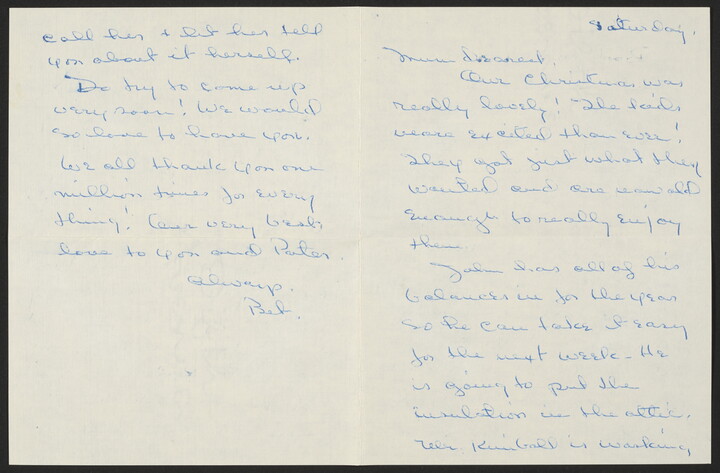 Saturday.
Mum dearest,
Our Christmas was
really lovely! The kids
more excited than ever!
They got just what they
wanted and are now old
enough to really enjoy
them.
John has all of his
balances in for the year
so he can take it easy
for the next week - He
is going to put the
insulation in the attic.
Mr. Kimball is working
call her + let her tell
you about it herself.
Do try to come up
very soon! We would
so love to have you.
We all thank you one
million times for every
thing! Our very best
love to you and Pater.
Always,
Bet.